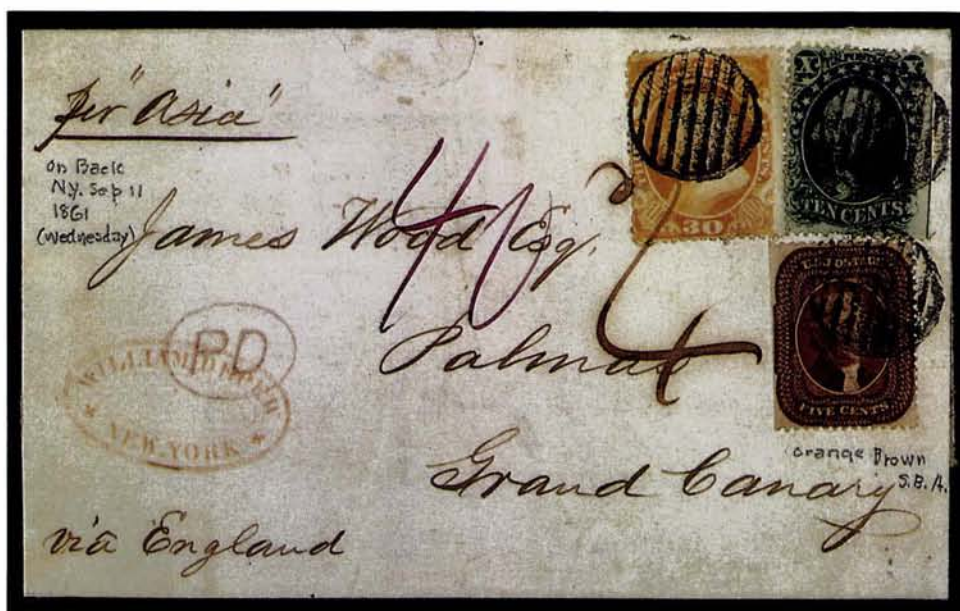 per "Asia"
on Back
N.Y. Sep 11
1861
(Wednesday)
James Wood Esq.
Palmas
Grand Canary
via England
40
PD
WILLIAM
NEW YORK
30
X X
TEN CENTS
U.S. POSTAGE
FIVE CENTS
Orange Brown
S.B.A.